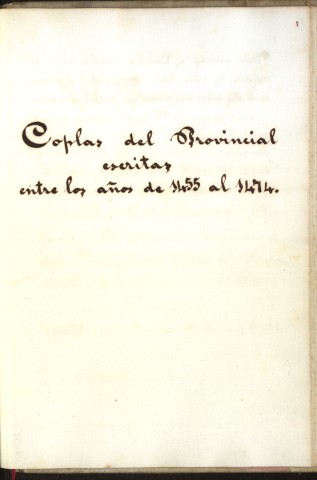 1
Coplas del Provincial
escritas
entre los años de 1455 al 1474.